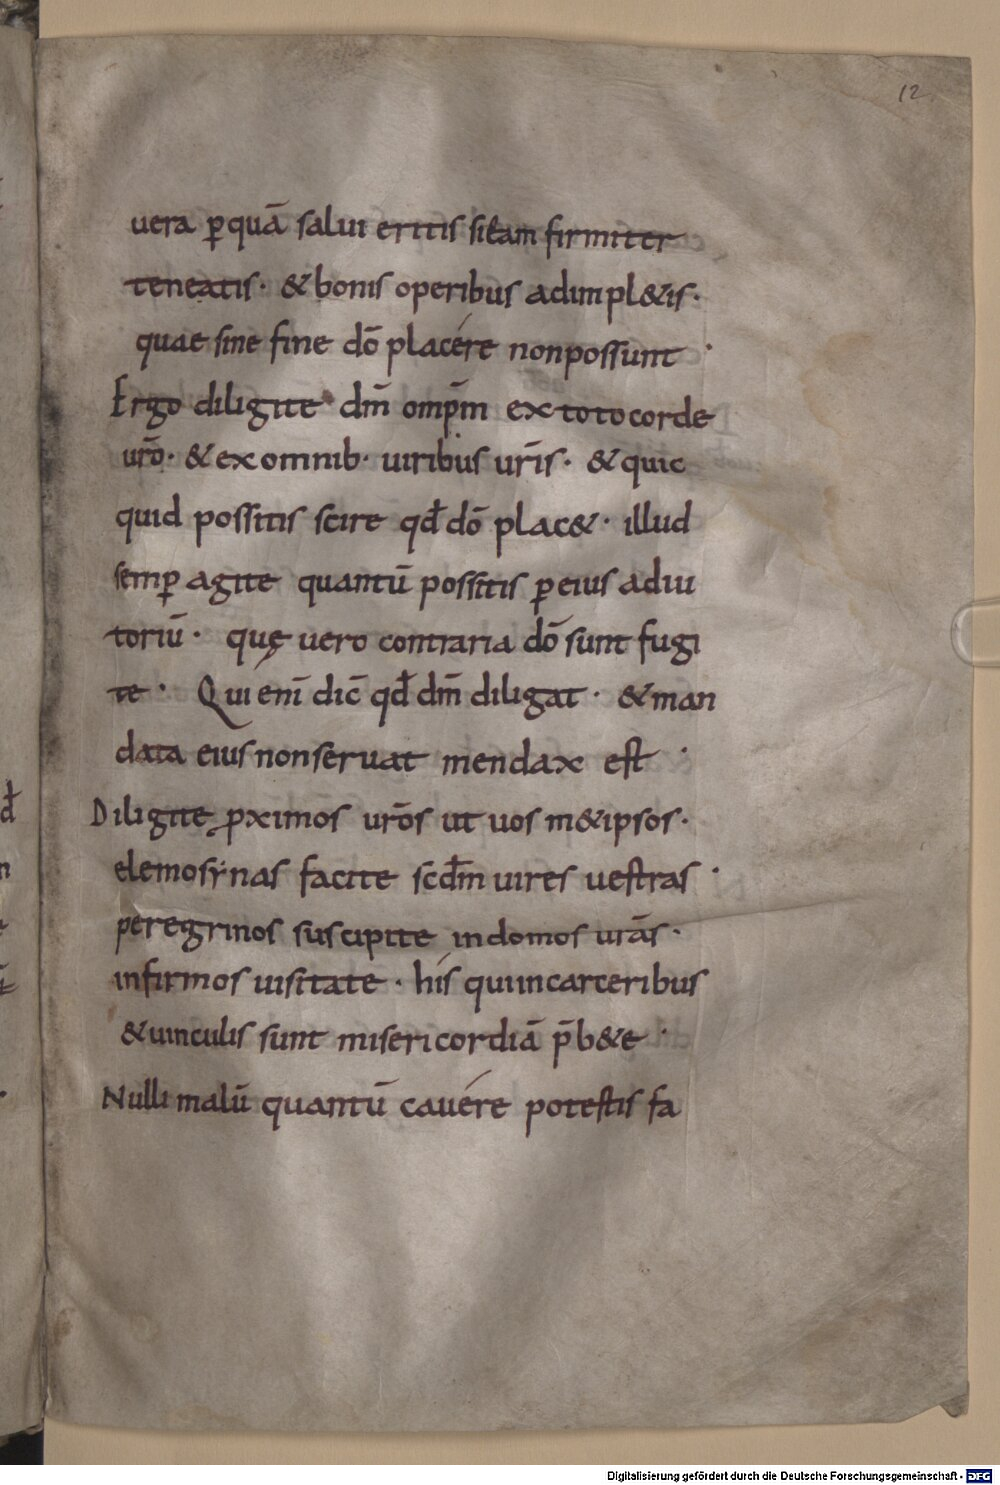 12
uera ꝑquā salui eritis si eam firmiter
teneatis· & bonis operibus adimpl&is·
quae sine fine dō placére nonpossunt ·
Ergo diligite dm̄ omp̄m ex toto corde
ur̄o· & ex omnib· uiribus ur̄is· & quic
quid possitis scire qd̄ dō plac&· illud
semꝑ agite quantū possitis ꝑ eius adiu
toriū· quę uero contraria dō sunt fugi
te· Qui enī dic̄ qd̄ dm̄ diligat· & man
data eius non seruat mendax est ·
Diligite ꝓximos ur̄os ut uos m&ipsos·
elemosẏnas facite scd̄m uires uestras ·
peregrinos suscipite in domos ur̄as·
infirmos uisitate· hís qui in carceribus
& uinculis sunt misericordiā p̄b&e ·
Nulli malū quantū cauére potestis fa
d̄
n
Digitalisierung gefördert durch die Deutsche Forschungsgemeinschaft - DFG